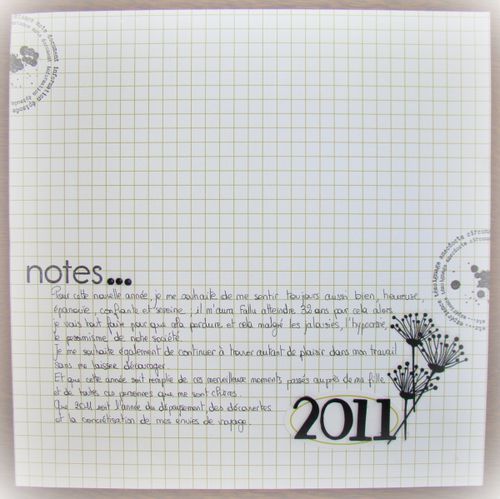 notes...
Pour cette nouvelle année, je me souhaite de me sentir toujours aussi bien, heureuse,
épanouie, confiante et sereine ; il m'aura fallu atteindre 32 ans pour cela alors
je vais tout faire pour que cela perdure et cela malgré les jalousies, l'hypocrisie,
le pessimisme de notre société.
Je me souhaite également de continuer à trouver autant de plaisir dans mon travail
sans me laisser décourager.
Et que cette année soit remplie de ces merveilleux moments passés auprès de ma fille
et de toutes ces personnes qui me sont chères.
Que 2011 soit l'année du dépaysement, des découvertes
et la concrétisation de mes envies de voyage.
2011